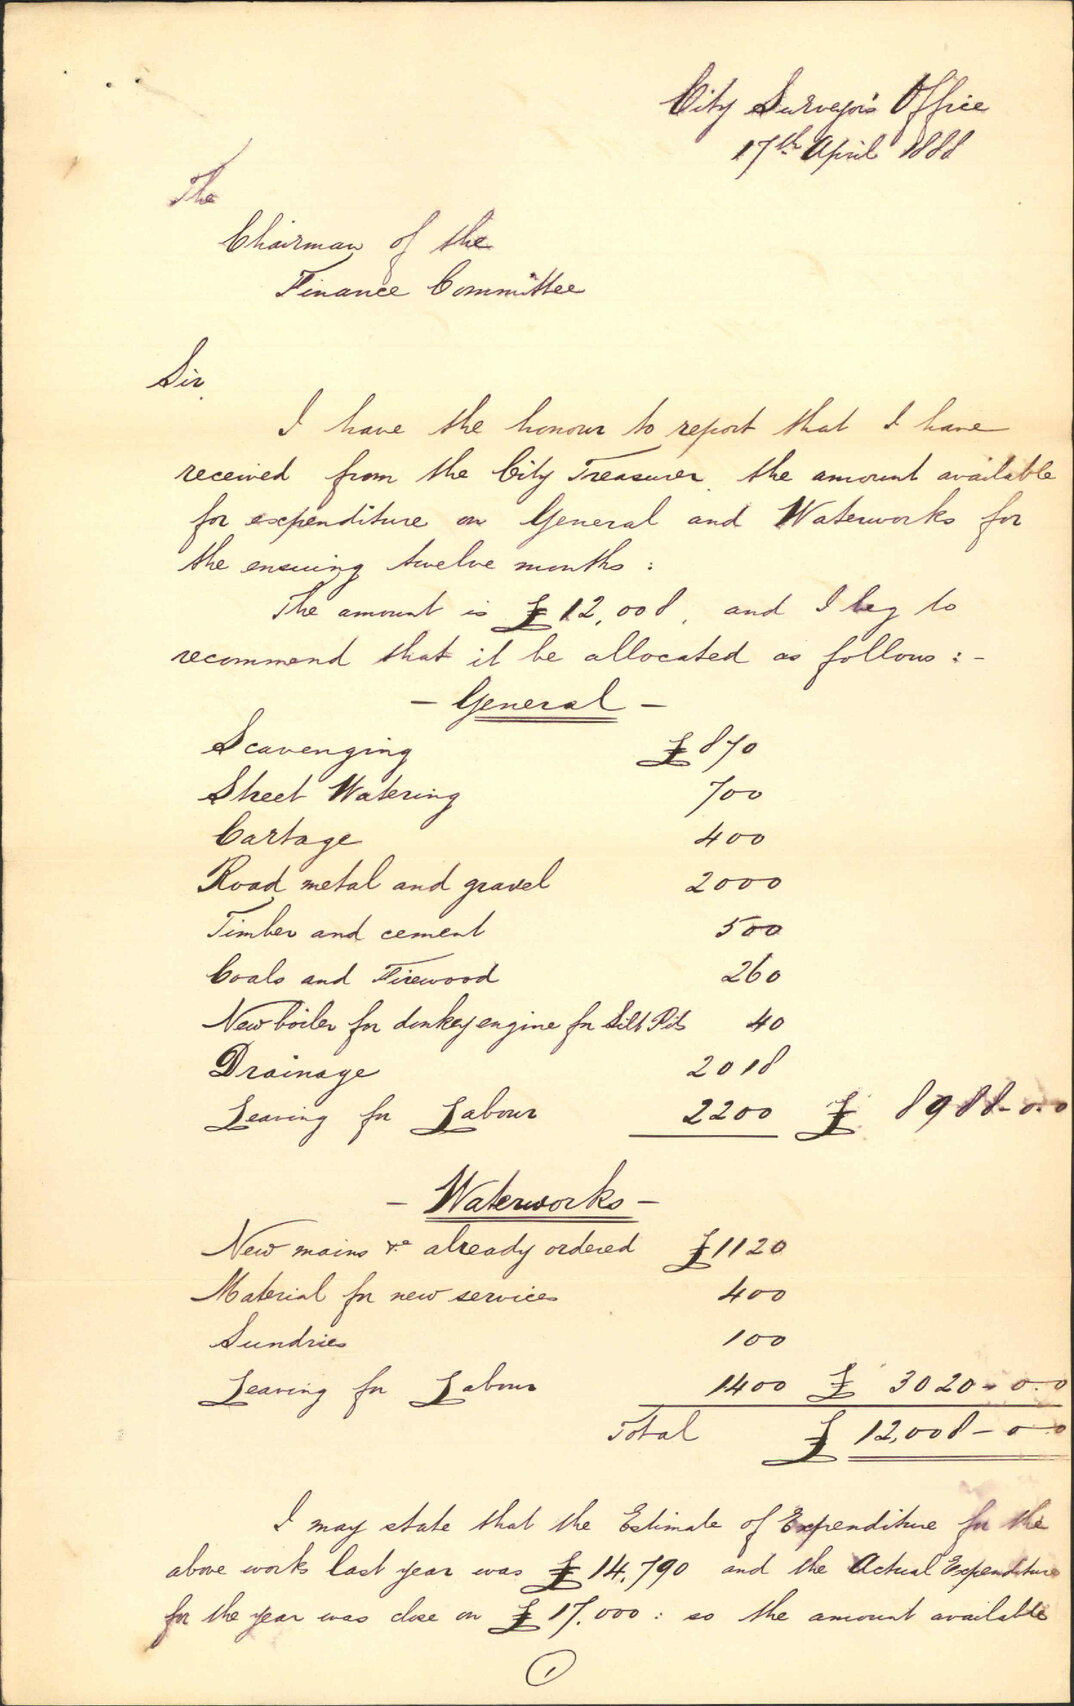 City Surveyor's Office
17th April 1888
The
Chairman of the
Finance Committee
Sir,
I have the honour to report that I have
received from the City Treasurer, the amount available
for expenditure on General and Waterworks for
the ensuing twelve months :
The amount is £12,008, and I beg to
recommend that it be allocated as follows :-
- General -
Scavenging £870
Street Watering 700
Cartage 400
Road metal and gravel 2000
Timber and cement 500
Coals and Firewood 260
New boiler for donkey engine for Silt Pit 40
Drainage 2018
Leaving for Labour 2200 £ 8988-0.0
- Waterworks -
New mains &c already ordered £1120
Material for new services 400
Sundries 100
Leaving for Labour 1400 £ 3020-0.0
Total £ 12,008-0-0
I may state that the Estimate of Expenditure for the
above works last year was £14,790 and the Actual Expenditure
for the year was close on £17.000 : so the amount available
1